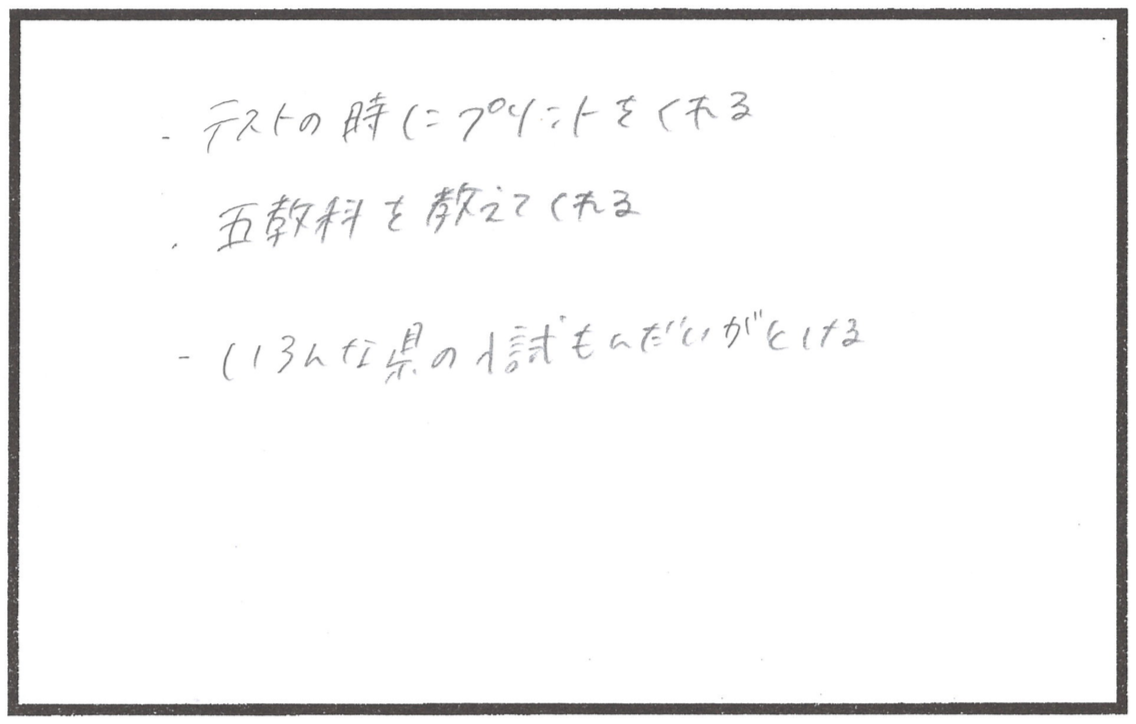 - テストの時にプリントをくれる
・五教科を教えてくれる
- いろんな県の入試もんだいがとける